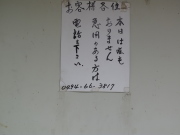 お客様各位
本日は留守
おりません
急用のある方は
電話を下さい
0494-66-3817